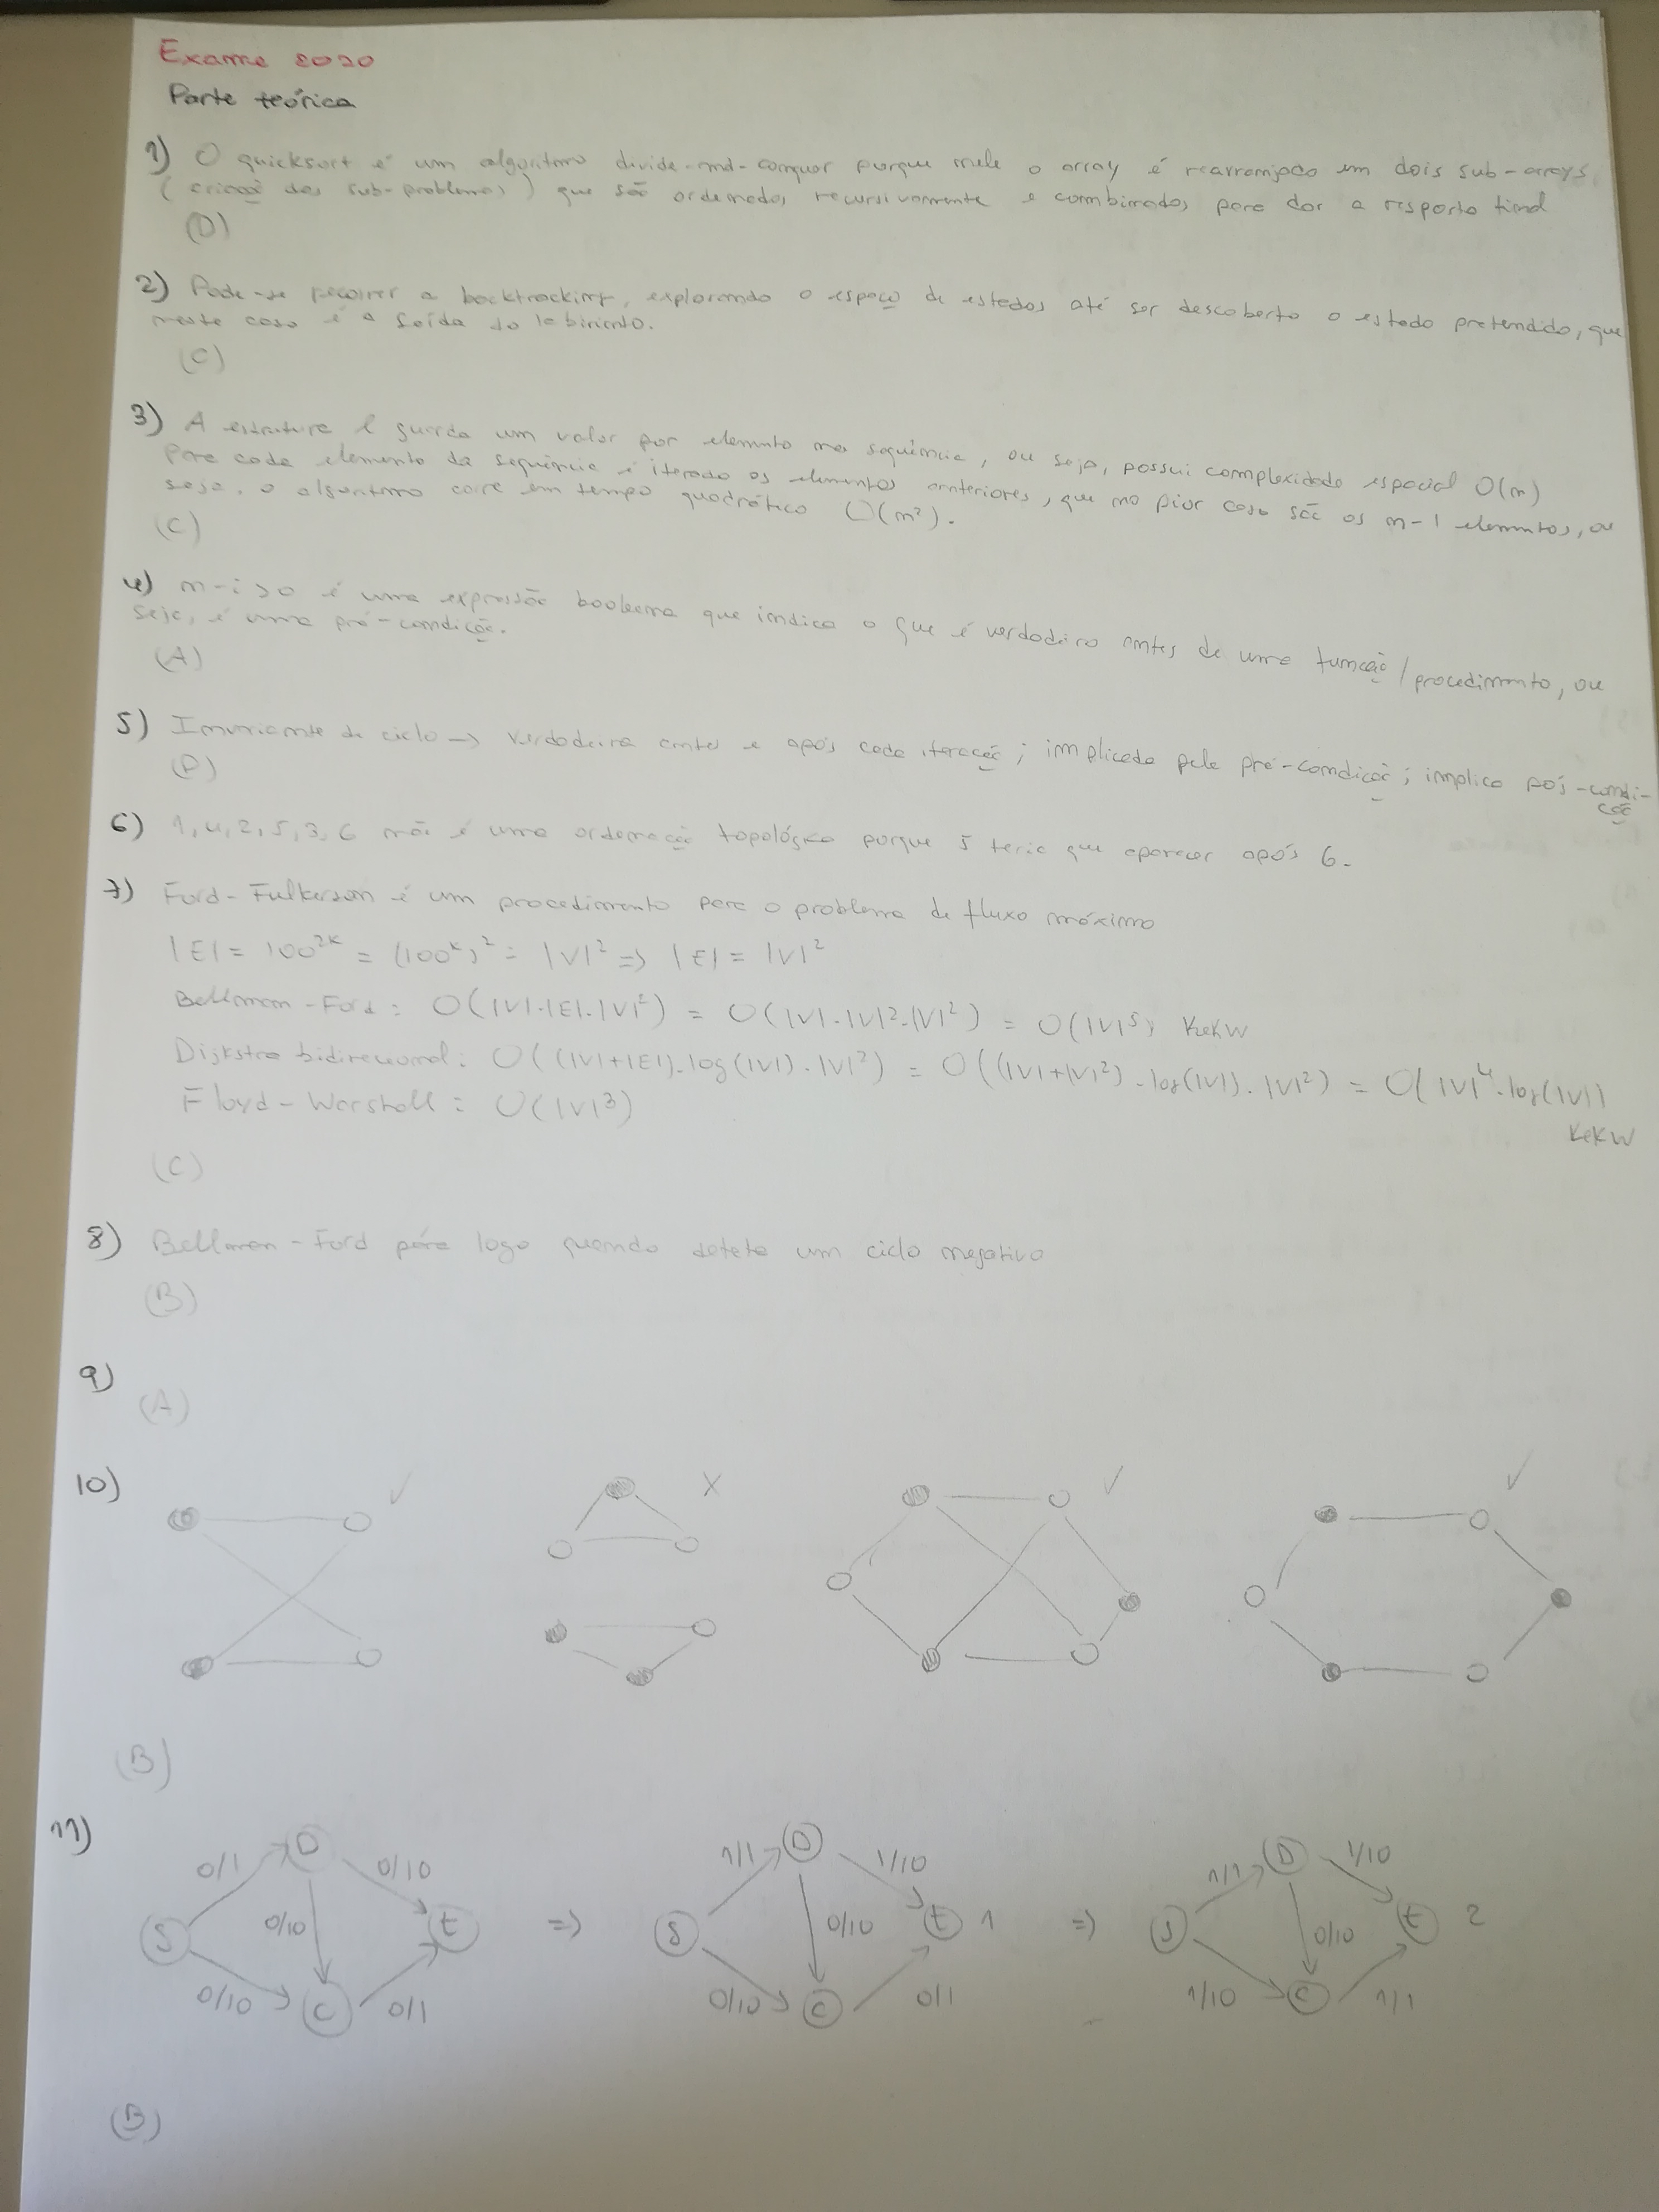 Exame 2020
Parte teórica
1) O quicksort é um algoritmo divide-and-conquer porque nele o array é rearranjado em dois sub-arrays
(criação dos sub-problemas) que são ordenados recursivamente e combinados para dar a resposta final
(D)
2) Pode-se recorrer a backtracking, explorando o espaço de estados até ser descoberto o estado pretendido, que
neste caso é a saída do labirinto.
(C)
3) A estrutura l guarda um valor por elemento na sequência, ou seja, possui complexidade espacial O(n)
Para cada elemento da sequência é iterado os elementos anteriores, que no pior caso são os n-1 elementos, ou
seja, o algoritmo corre em tempo quadrático O(n²).
(C)
4) n-i>0 é uma expressão booleana que indica o que é verdadeiro antes de uma função/procedimento, ou
seja, é uma pré-condição.
(A)
5) Invariante de ciclo -> verdadeira antes e após cada iteração; implicada pela pré-condição; implica pós-condi-
ção
6) 1,4,2,5,3,6 não é uma ordenação topológica porque 5 teria que aparecer após 6.
7) Ford-Fulkerson é um procedimento para o problema de fluxo máximo
|E| = 100^2k = (100^k)^2 = |V|^2 => |E| = |V|^2
Bellman-Ford: O(|V|.|E|.|V|²) = O(|V|.|V|².|V|²) = O(|V|⁵) KekW
Dijkstra bidirecional: O((|V|+|E|).log(|V|).|V|²) = O((|V|+|V|²).log(|V|).|V|²) = O(|V|⁴.log(|V|)
KekW
Floyd-Warshall: O(|V|³)
(C)
8) Bellman-Ford pára logo quando deteta um ciclo negativo
(B)
9)
(A)
10)
(B)
11)
0/1 D 0/10 S 0/10 t 0/10 C 0/1 =>
1/1 D 1/10 S 0/10 t 1 0/10 C 0/1 =>
1/1 D 1/10 S 0/10 t 2 1/10 C 1/1
(B)